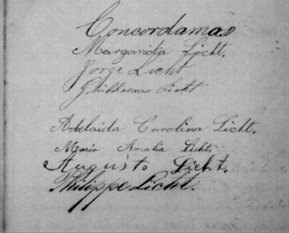 Concordamos
Margarida Licht.
Jorge Licht
Guilherme Licht
Adelaida Carolina Licht.
Maria Amalia Licht.
Augusto Licht.
Philippe Licht.